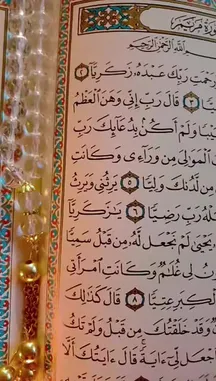 سورة مريم
بسم الله الرحمن الرحيم
رَحْمَتِ رَبِّكَ عَبْدَهُ زَكَرِيَّا ٢
٣ قَالَ رَبِّ إِنِّي وَهَنَ الْعَظْمُ
شَيْبًا وَلَمْ أَكُنْ بِدُعَائِكَ رَبِّ
الْمَوَالِيَ مِنْ وَرَاءِي وَكَانَتِ
مِنْ لَدُنْكَ وَلِيًّا ٥ يَرِثُنِي وَيَرِثُ
رَبِّ رَضِيًّا ٦ يَا زَكَرِيَّا
يَحْيَى لَمْ نَجْعَلْ لَهُ مِنْ قَبْلُ سَمِيًّا
لِي غُلَامٌ وَكَانَتِ امْرَأَتِي
الْكِبَرِ عِتِيًّا ٨ قَالَ كَذَلِكَ
وَقَدْ خَلَقْتُكَ مِنْ قَبْلُ وَلَمْ تَكُ
اجْعَلْ لِي آيَةً قَالَ آيَتُكَ أَلَّا